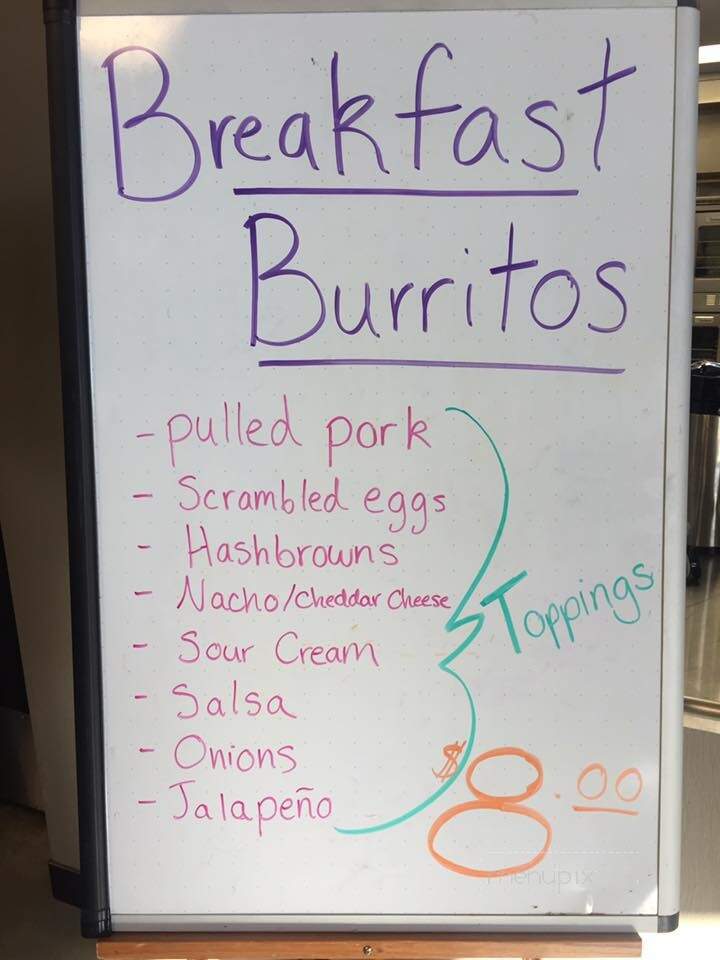 Breakfast
Burritos
- pulled pork
- Scrambled eggs
- Hashbrowns
- Nacho/Cheddar Cheese
- Sour Cream
- Salsa
- Onions
- Jalapeño
Toppings
$8.00
menupix